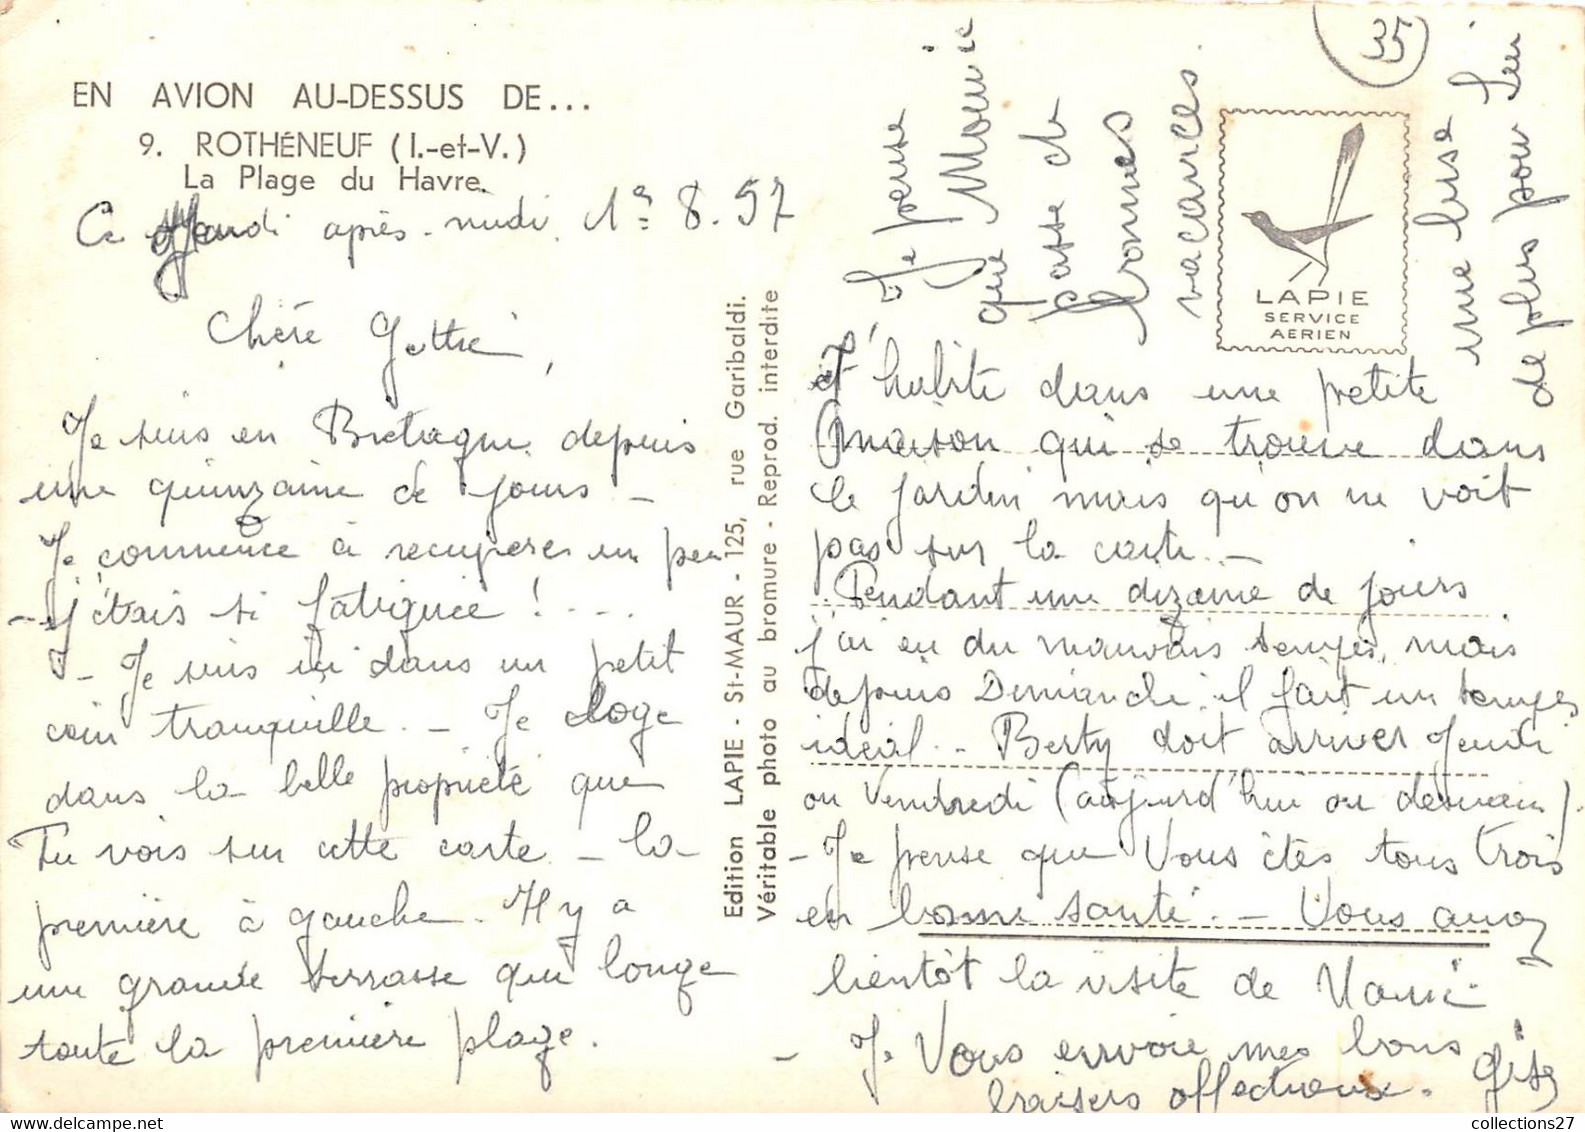 EN AVION AU-DESSUS DE...
9. ROTHÉNEUF (I.-et-V.)
La Plage du Havre.
Ce Jeudi après-midi 1er 8.57
Chère
Je suis en Bretagne depuis
une quinzaine de jours -
Je commence à recuperer un peu
- j'étais si fatiguée ! ...
- Je suis ici dans un petit
coin tranquille. - Je loge
dans la belle propriété que
Tu vois sur cette carte - la
première à gauche. Il y a
une grande terrasse qui longe
toute la première plage.
Edition LAPIE - St-MAUR - 125, rue Garibaldi.
Véritable photo au bromure - Reprod. interdite
J'habite dans une petite
maison qui se trouve dans
le jardin mais qu'on ne voit
pas sur la carte. -
Pendant une dizaine de jours
j'ai eu du mauvais temps, mais
depuis Dimanche il fait un temps
idéal. - Berty doit arriver Jeudi
ou Vendredi (aujourd'hui ou demain).
- Je pense que Vous êtes tous trois
en bonne santé. - Vous aurez
bientôt la visite de
- Je Vous envoie mes bons
baisers affectueux.
Je pense
que
passe de
bonnes
vacances.
LAPIE
SERVICE
AERIEN
35
une bise
de plus pour lui
collections27